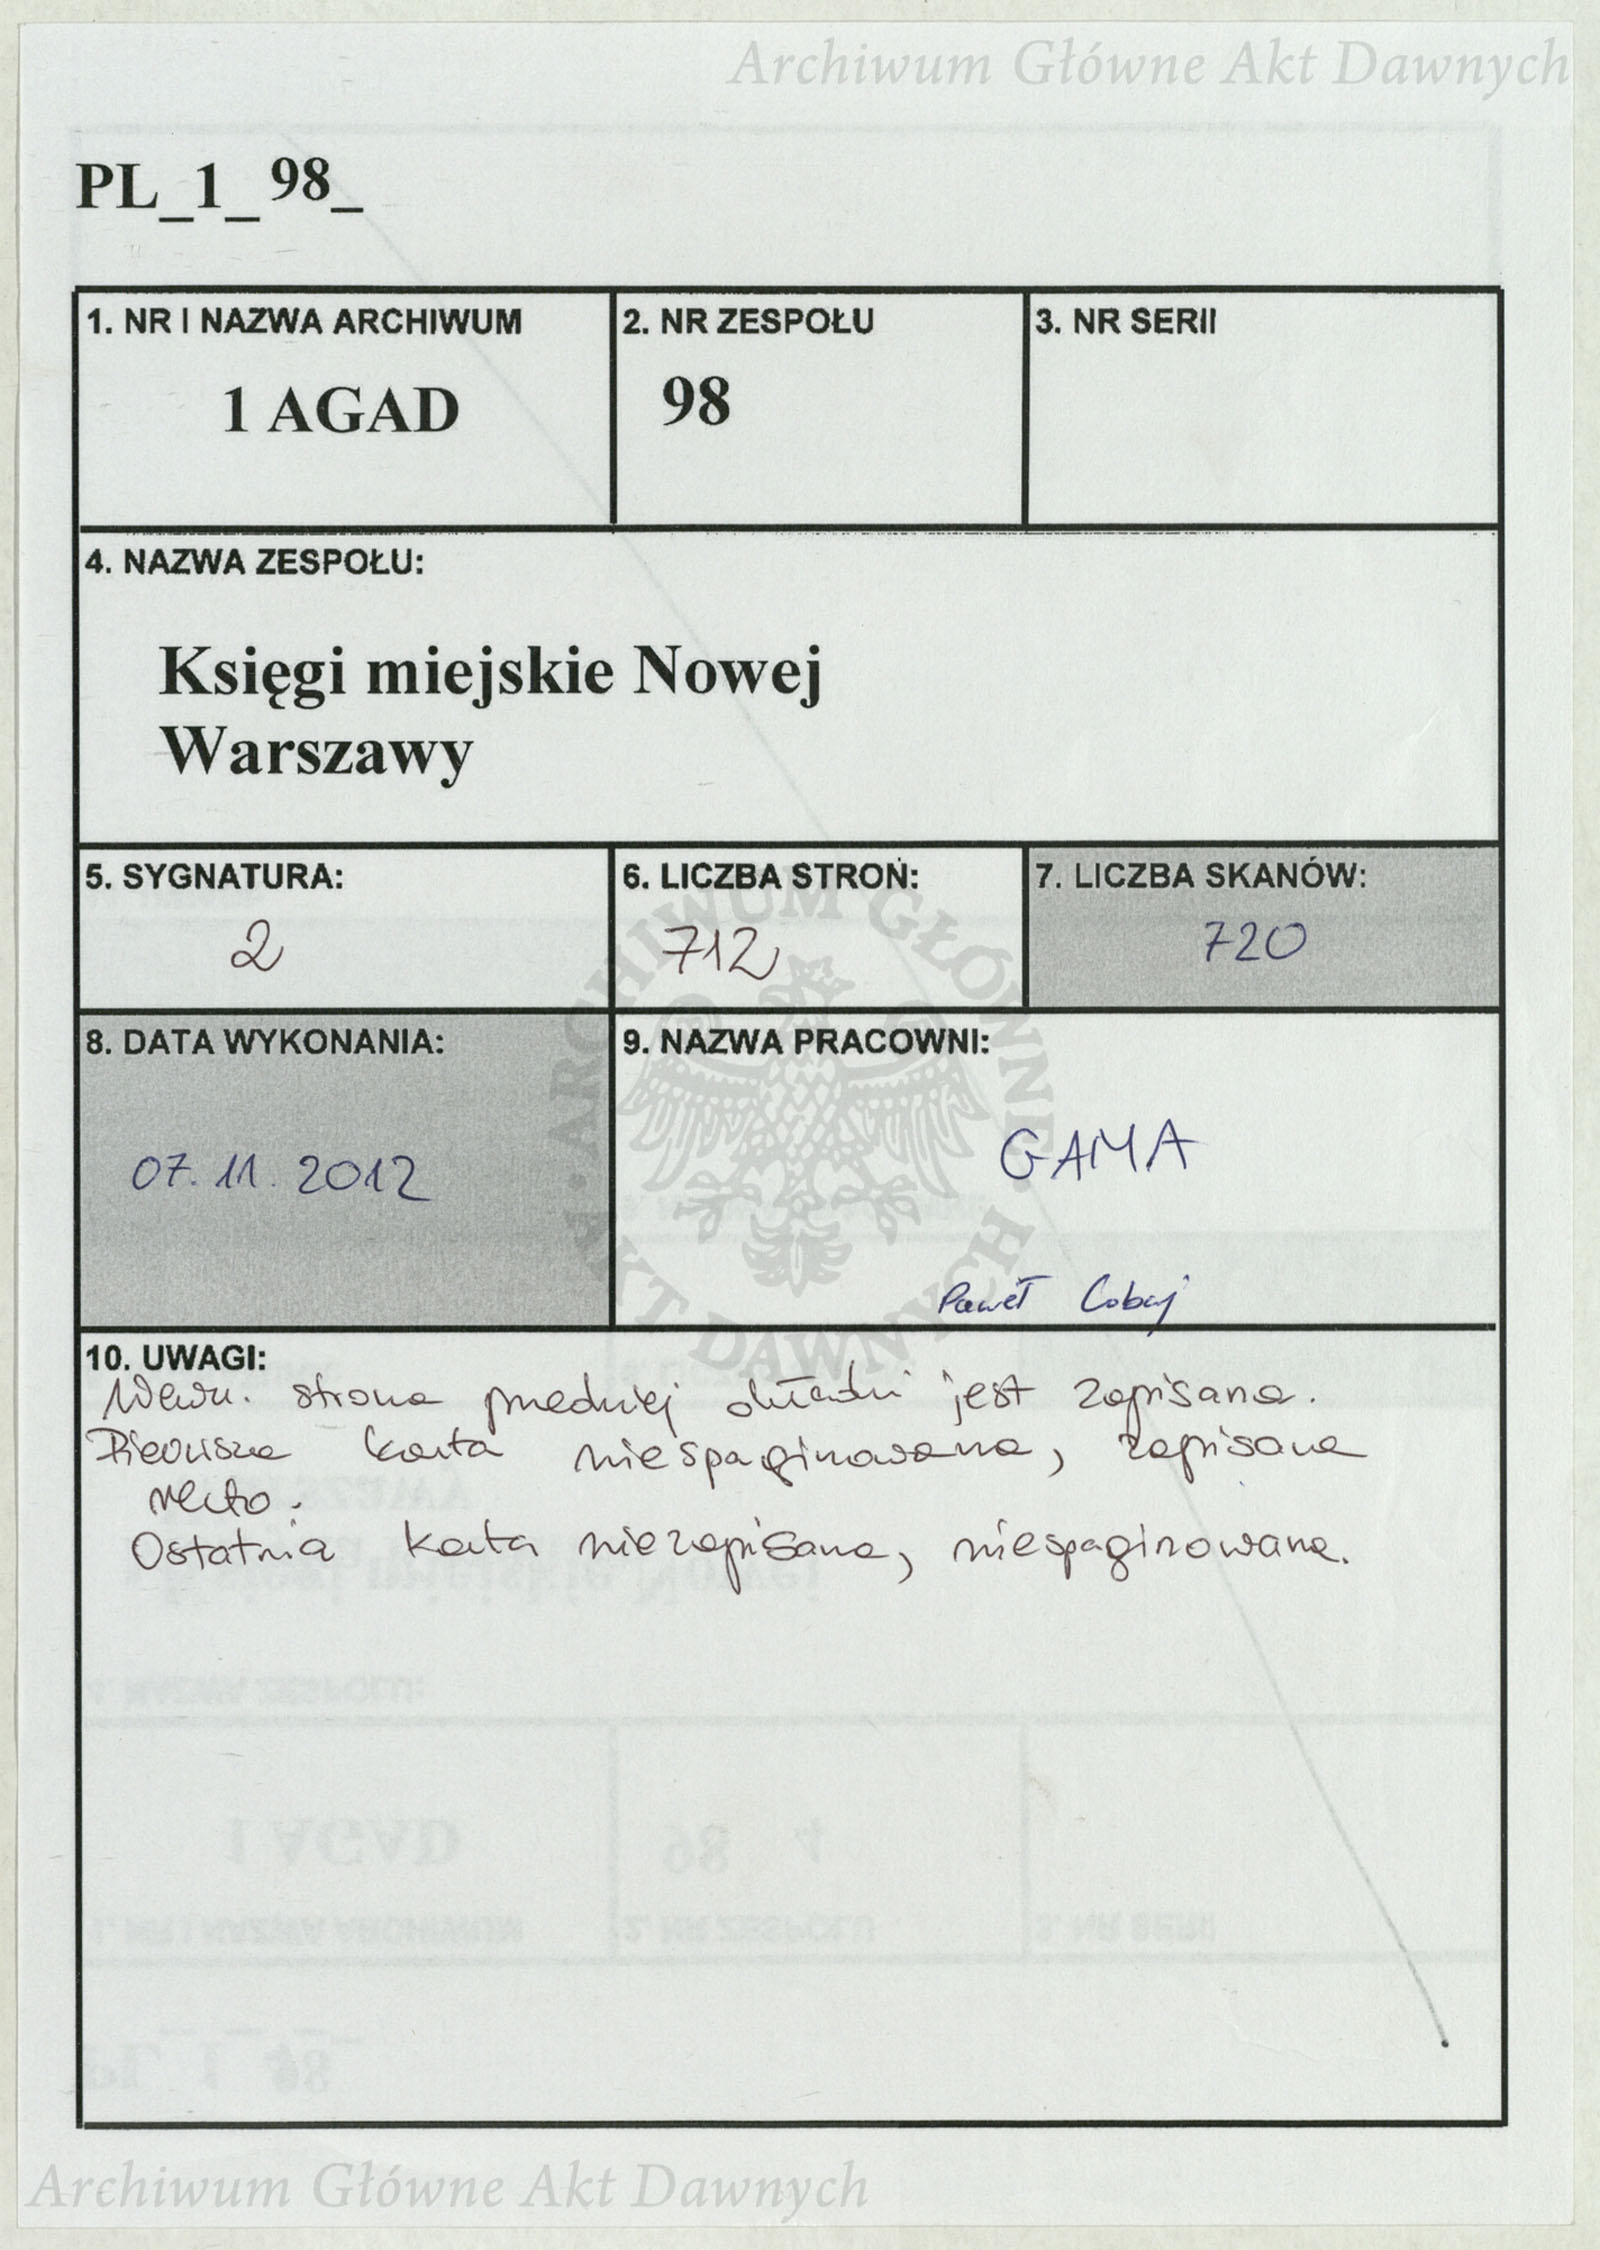 Archiwum Główne Akt Dawnych
PL_1_ 98_
1. NR I NAZWA ARCHIWUM
1 AGAD
2. NR ZESPOŁU
98
3. NR SERII
4. NAZWA ZESPOŁU:
Księgi miejskie Nowej
Warszawy
5. SYGNATURA:
2
6. LICZBA STRON:
712
7. LICZBA SKANÓW:
720
8. DATA WYKONANIA:
07.11.2012
9. NAZWA PRACOWNI:
GAMA
Paweł
ARCHIWUM GŁÓWNE AKT DAWNYCH
10. UWAGI:
Wewn. strona przedniej okładki jest zapisana.
Pierwsza karta niespaginowana, zapisana
recto.
Ostatnia karta niezapisana, niespaginowana.
Archiwum Główne Akt Dawnych